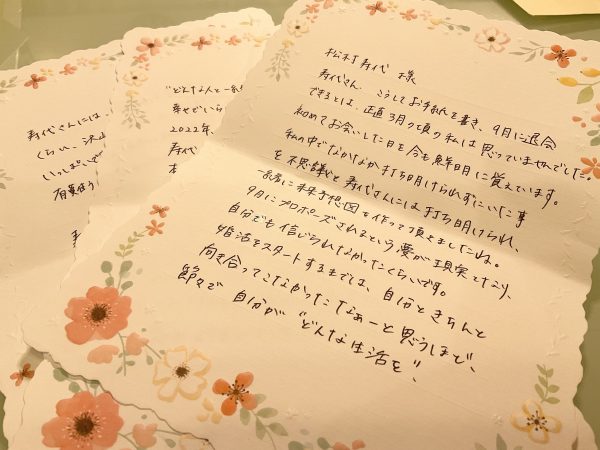 寿代さんには、
くらい、沢山
いっぱいで
"どんな人と一緒
幸せでいら
2022年、
寿代
松村寿代 様
寿代さん、こうしてお手紙を書き、9月に退会
できるとは、正直3月頃の私は思っていませんでした。
初めてお会いした日を今も鮮明に覚えています。
私の中でなかなか打ち明けられずにいた事
を不思議と寿代さんには打ち明けられ、
一緒に未来予想図を作って頂きましたね。
9月にプロポーズされるという夢が現実となり、
自分でも信じられなかったくらいです。
婚活をスタートするまでは、自分ときちんと
向き合ってこなかったなぁーと思うほど、
節々で 自分が"どんな生活を"、